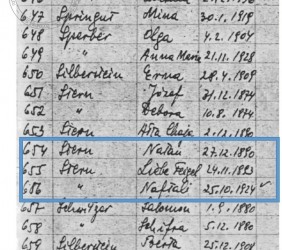 647 Springut Mina 30.1.1919
648 Sperber Olga 4.2.1904
649 " Anna Maria 21.11.1928
650 Silberstein Erma 28.4.1909
651 Stern József 31.12.1874
652 " Debora 10.8.1874
653 Stern 2.12.1880
654 Stern Natán 27.12.1890
655 Stern Liebe Feigel 24.11.1893
656 " Naftali 25.10.1924
657 Schwitzer Salamon 1.9.1880
658 " Schifra 5.12.1880
Silberstein Berta 25.12.1901